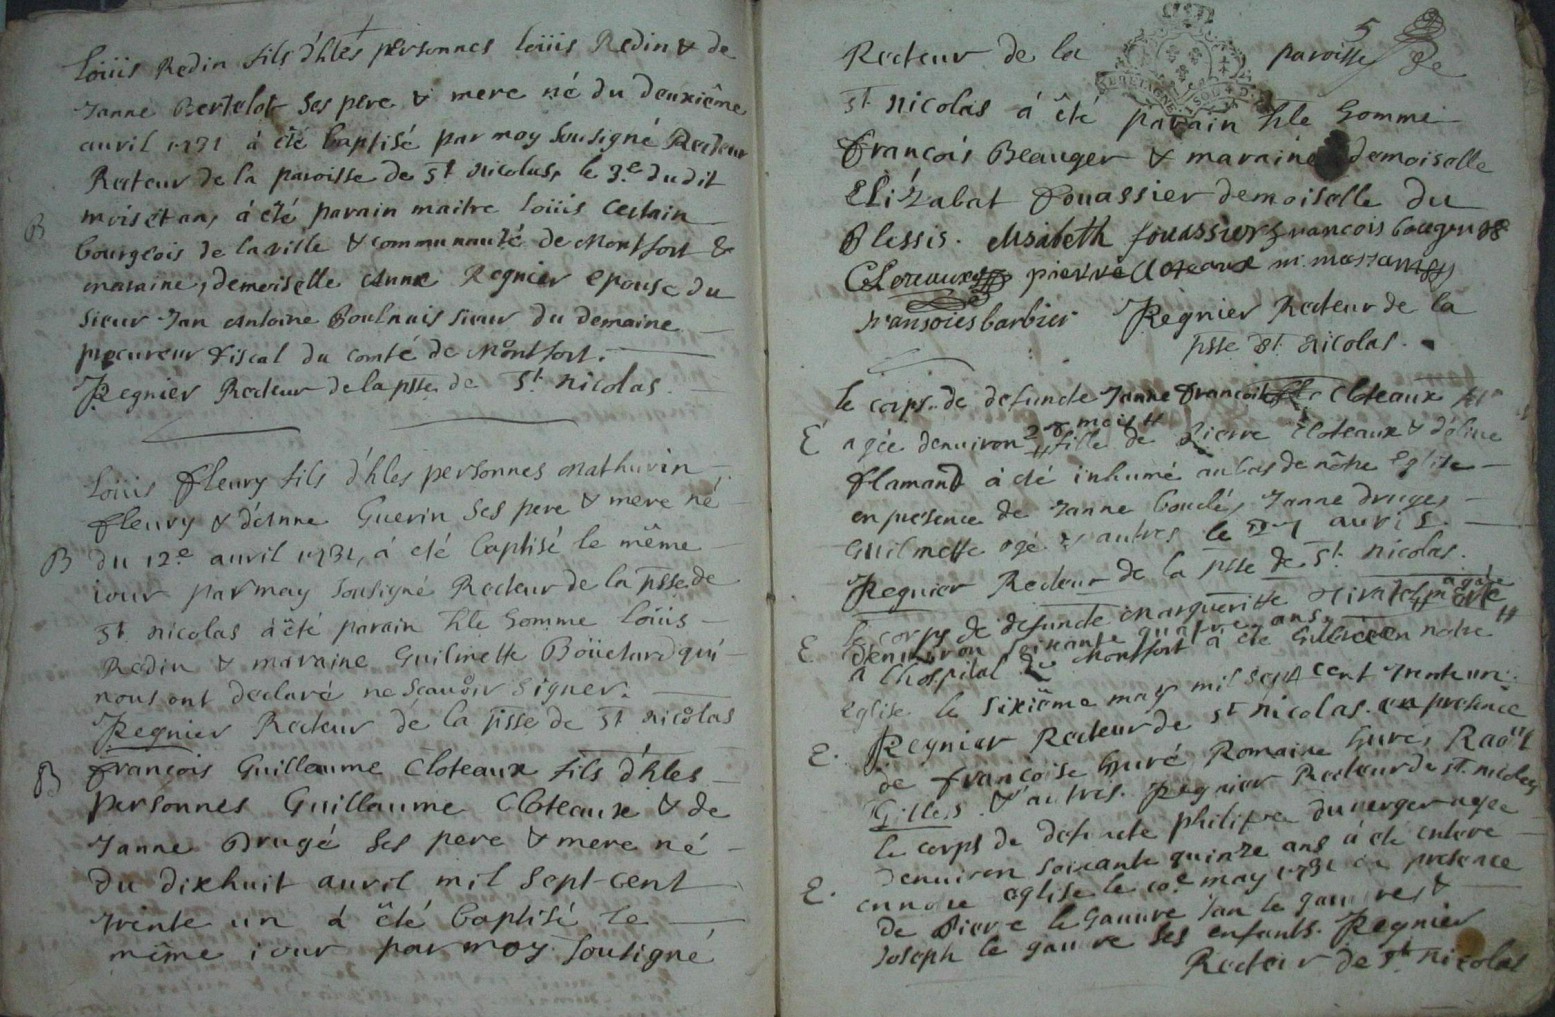 Loüis Redin fils d'hles personnes loüis Redin & de
Janne Bertelot ses pere & mere né du deuxiême
auril 1731 á été baptisé par moy sousigné Recteur
Recteur de la paroisse de St nicolas, le 3.e dudit
mois et an, á été parain maitre loüis Certain
B
bourgeois de la ville & communauté de Montfort &
maraine, demoiselle Anne Regnier epouse du
sieur Jan Antoine Boulnais sieur du demaine
procureur fiscal du comté de Montfort.
Regnier Recteur de la psse de St nicolas.
Loüis fleury fils d'hles personnes Mathurin
fleury & d'Anne Guerin ses pere & mere né
B du 12.e auril 1731, á eté baptisé le même
iour par moy sousigné Recteur de la psse de
St nicolas á êté parain hle homme Loüis
Redin & maraine Guilmette Boüetard qui
nous ont declaré ne scauoir signer.
Regnier Recteur de la psse de St nicolas
B françois Guillaume Cloteaux fils d'hles
personnes Guillaume Cloteaux & de
Janne Drugé ses pere & mere né
du dixhuit auril mil sept-cent
trente un á êté baptisé le
même iour par moy sousigné
5
Recteur de la paroisse de
BRETAGNE
St nicolas á êté parain hle homme
françois Beauger & maraine demoiselle
Elizabat fouassier demoiselle du
Plessis. elisabeth fouassier francois bauger
Cloteaux pierre Cloteaux
fransoies barbier Regnier Recteur de la
psse St nicolas.
le corps de defuncte Janne françoise Cloteaux
2 mois
E agée denuiron fille de Pierre Cloteaux & d'oliue
flamand á eté inhumé au bas de nôtre eglise
en presence de Janne bouclé, Janne Druges
Guilmette ogé & autres le auril.
Regnier Recteur de la psse de St nicolas.
E le corps de defuncte Margueritte agée
denuiron soixante quatre ans morte
a lhospital de Montfort á eté en notre
eglise le sixiême may mil sept cent trente un.
E. Regnier Recteur de St nicolas. en presence
de françoise huré, Romaine huré, Raoül
Gilles & autres. Regnier Recteur de St. nicolas
le corps de defuncte philippe duuerger agée
denuiron soixante quinze ans á eté enterré
E. en notre eglise le 10e may 1731 en presence
de Pierre le Gauure Jan le gauure &
Joseph le gauure ses enfants. Regnier
Recteur de St nicolas